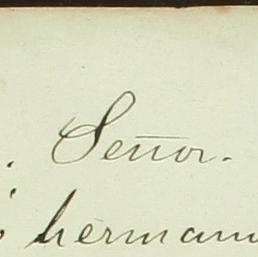 . Señor.
herman